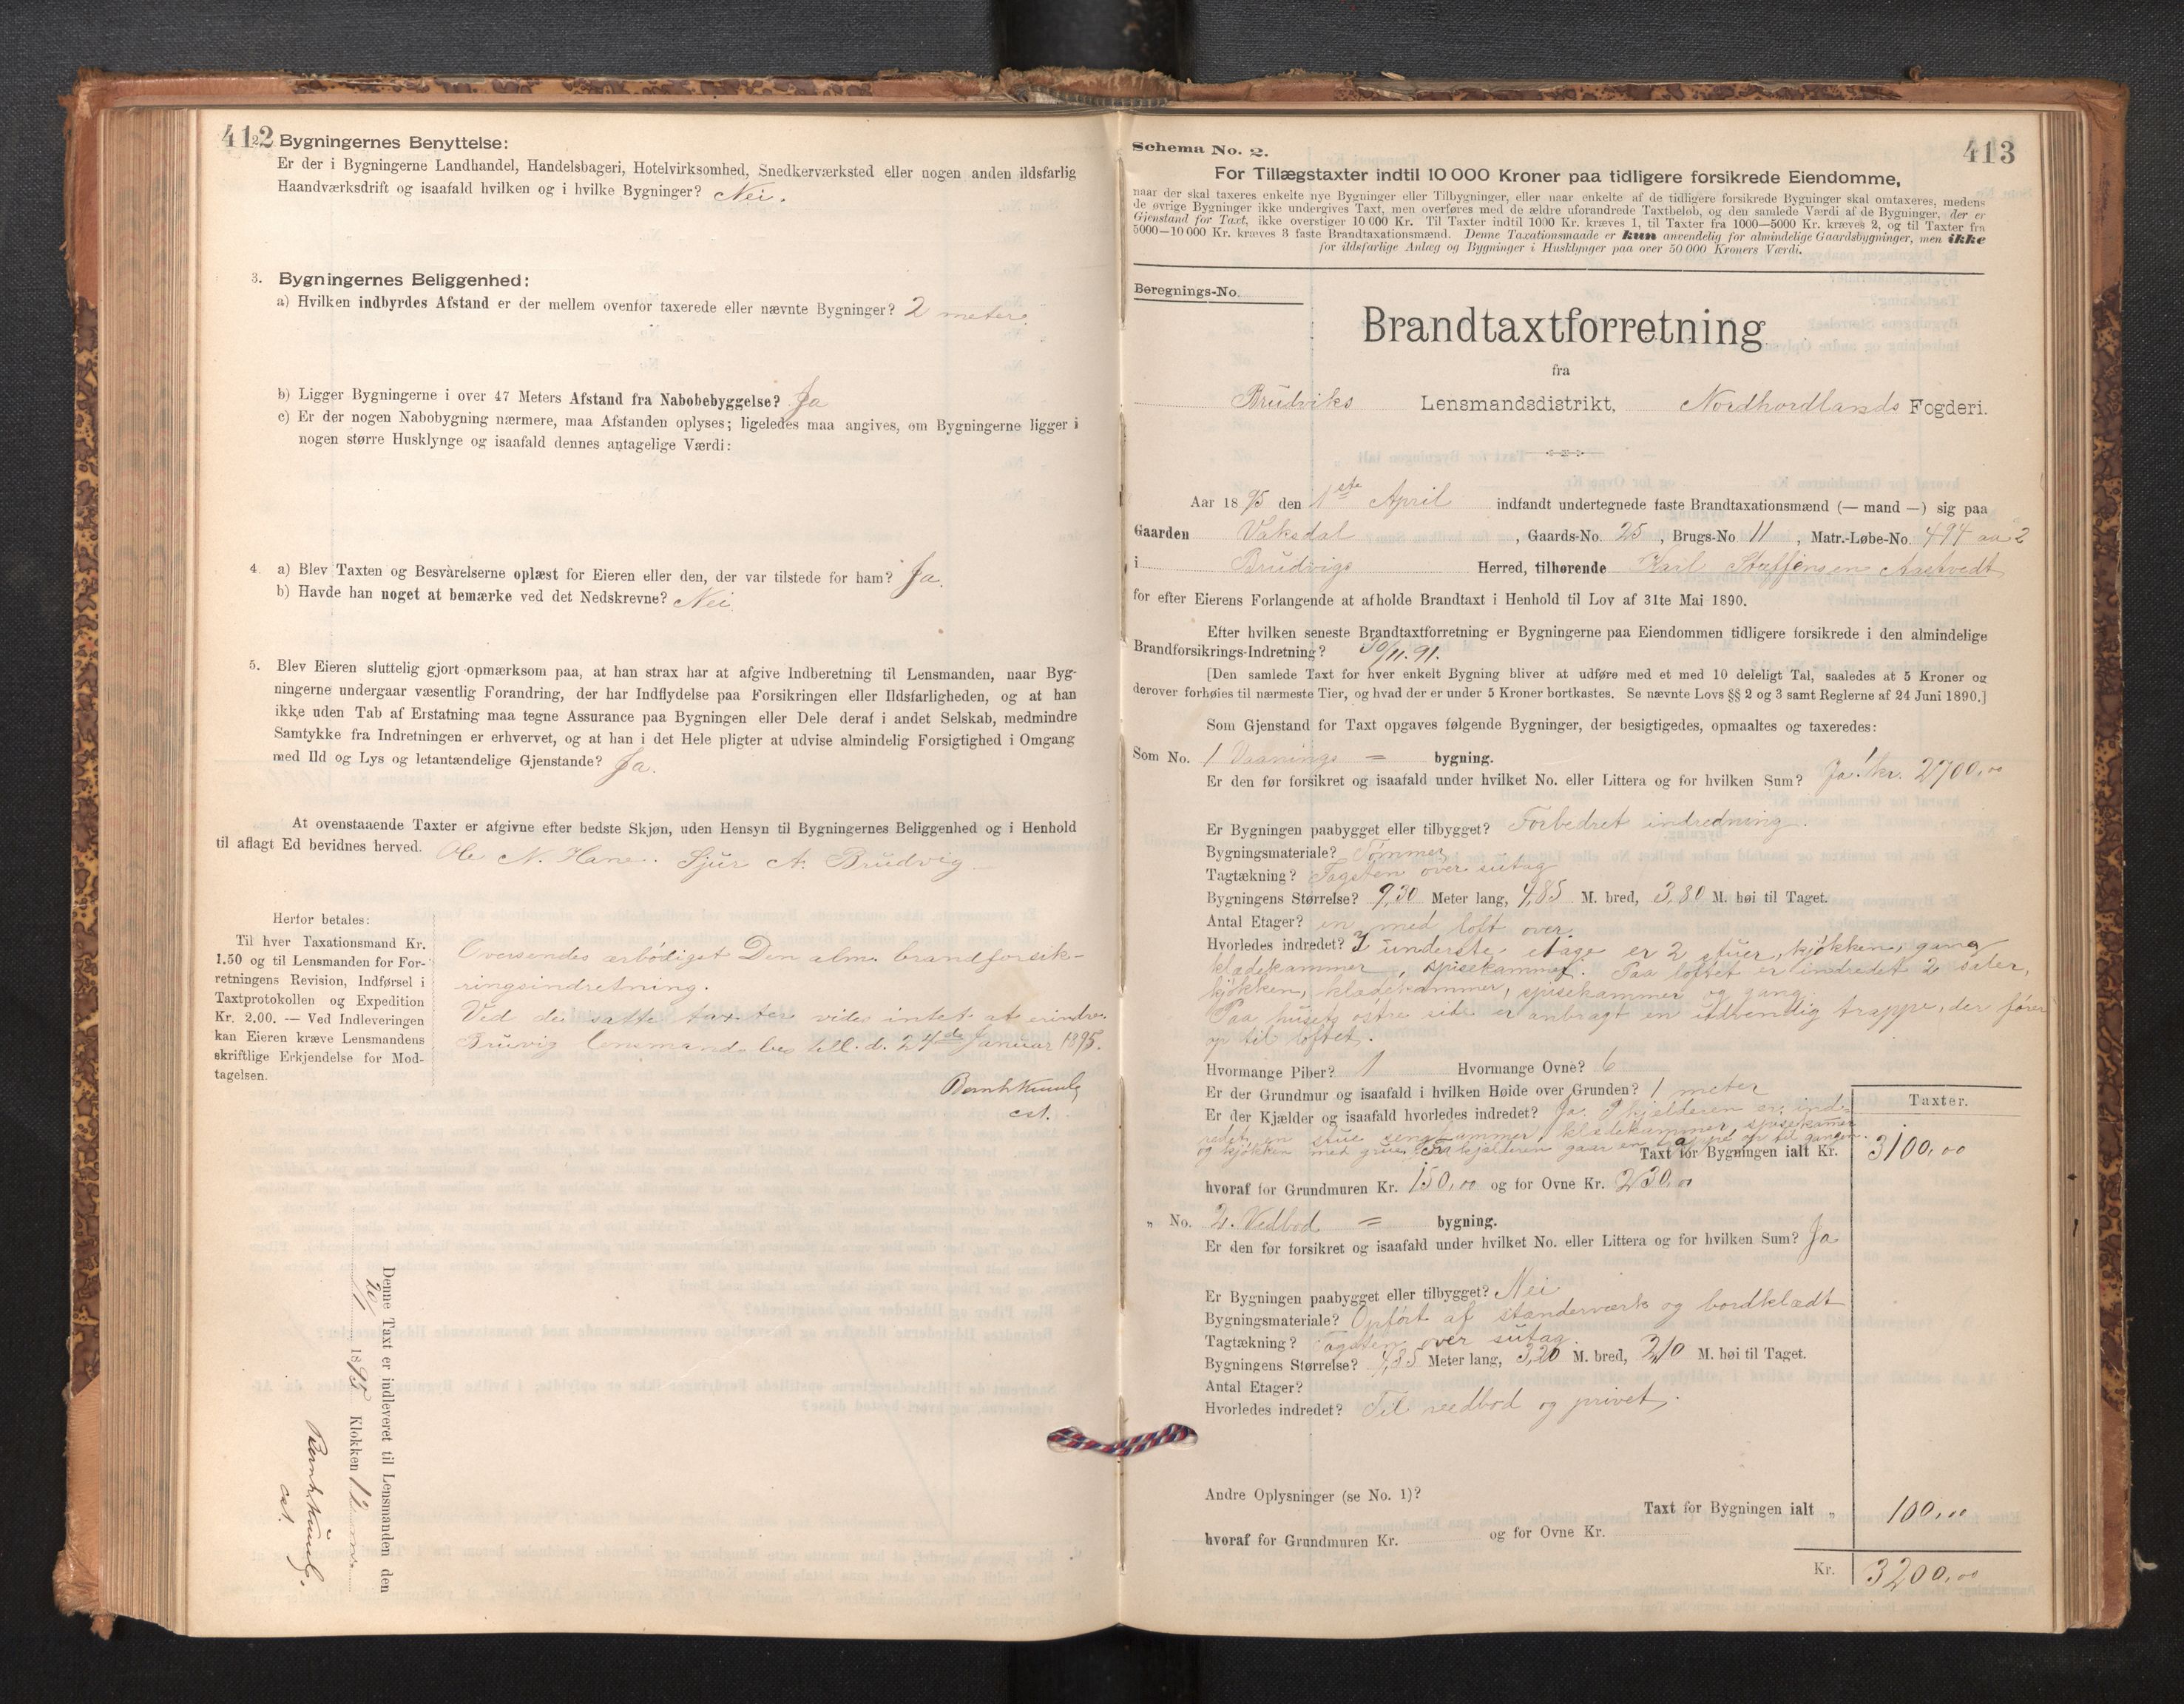 412 Bygningernes Benyttelse:
Er der i Bygningerne Landhandel, Handelsbageri, Hotelvirksomhed, Snedkerværksted eller nogen anden ildsfarlig
Haandværksdrift og isaafald hvilken og i hvilke Bygninger? Nei.
3. Bygningernes Beliggenhed:
a) Hvilken indbyrdes Afstand er der mellem ovenfor taxerede eller nævnte Bygninger? 2 meter.
b) Ligger Bygningerne i over 47 Meters Afstand fra Nabobebyggelse? Ja
c) Er der nogen Nabobygning nærmere, maa Afstanden oplyses; ligeledes maa angives, om Bygningerne ligger i
nogen større Husklynge og isaafald dennes antagelige Værdi:
4. a) Blev Taxten og Besvarelserne oplæst for Eieren eller den, der var tilstede for ham? Ja.
b) Havde han noget at bemærke ved det Nedskrevne? Nei
5. Blev Eieren sluttelig gjort opmærksom paa, at han strax har at afgive Indberetning til Lensmanden, naar Byg-
ningerne undergaar væsentlig Forandring, der har Indflydelse paa Forsikringen eller Ildsfarligheden, og at han
ikke uden Tab af Erstatning maa tegne Assurance paa Bygningen eller Dele deraf i andet Selskab, medmindre
Samtykke fra Indretningen er erhvervet, og at han i det Hele pligter at udvise almindelig Forsigtighed i Omgang
med Ild og Lys og letantændelige Gjenstande? Ja.
At ovenstaaende Taxter er afgivne efter bedste Skjøn, uden Hensyn til Bygningernes Beliggenhed og i Henhold
til aflagt Ed bevidnes herved. Ole N. Hane. Sjur A. Brudvig
Herfor betales:
Til hver Taxationsmand Kr.
1.50 og til Lensmanden for For-
retningens Revision, Indførsel i
Taxtprotokollen og Expedition
Kr. 2.00. — Ved Indleveringen
kan Eieren kræve Lensmandens
skriftlige Erkjendelse for Mod-
tagelsen.
Oversendes ærbødigst Den alm. brandforsik-
ringsindretning.
Ved de satte taxter vides intet at erindre.
Bruvig lensmands bestill. d. 24de Januar 1895.
cst.
Denne Taxt er indleveret til Lensmanden den
20/1 1895 Klokken 12
cst.
413
Schema No. 2.
For Tillægstaxter indtil 10 000 Kroner paa tidligere forsikrede Eiendomme,
naar der skal taxeres enkelte nye Bygninger eller Tilbygninger, eller naar enkelte af de tidligere forsikrede Bygninger skal omtaxeres, medens
de øvrige Bygninger ikke undergives Taxt, men overføres med de ældre uforandrede Taxtbeløb, og den samlede Værdi af de Bygninger, der er
Gjenstand for Taxt, ikke overstiger 10 000 Kr. Til Taxter indtil 1000 Kr. kræves 1, til Taxter fra 1000—5000 Kr. kræves 2, og til Taxter fra
5000—10 000 Kr. kræves 3 faste Brandtaxationsmænd. Denne Taxationsmaade er kun anvendelig for almindelige Gaardsbygninger, men ikke
for ildsfarlige Anlæg og Bygninger i Husklynger paa over 50 000 Kroners Værdi.
Beregnings-No.
Brandtaxtforretning
fra
Brudviks Lensmandsdistrikt, Nordhordlands Fogderi.
Aar 1895 den 1ste April indfandt undertegnede faste Brandtaxationsmænd (— mand —) sig paa
Gaarden Vaksdal, Gaards-No. 25, Brugs-No 11, Matr.-Løbe-No. 494 aa 2
i Brudvigs Herred, tilhørende Karl Steffensen
for efter Eierens Forlangende at afholde Brandtaxt i Henhold til Lov af 31te Mai 1890.
Efter hvilken seneste Brandtaxtforretning er Bygningerne paa Eiendommen tidligere forsikrede i den almindelige
Brandforsikrings-Indretning? 30/11.91.
[Den samlede Taxt for hver enkelt Bygning bliver at udføre med et med 10 deleligt Tal, saaledes at 5 Kroner og
derover forhøies til nærmeste Tier, og hvad der er under 5 Kroner bortkastes. Se nævnte Lovs §§ 2 og 3 samt Reglerne af 24 Juni 1890.]
Som Gjenstand for Taxt opgaves følgende Bygninger, der besigtigedes, opmaaltes og taxeredes:
Som No. 1 Vaanings = bygning.
Er den før forsikret og isaafald under hvilket No. eller Littera og for hvilken Sum? Ja! kr. 2700,00
Er Bygningen paabygget eller tilbygget? Forbedret indredning.
Bygningsmateriale? Tømmer
Tagtækning? Tagsten over sutag
Bygningens Størrelse? 9,30 Meter lang, 4,85 M. bred, 3,80 M. høi til Taget.
Antal Etager? en med loft over.
Hvorledes indredet? I underste etage er 2 stuer, kjøkken, gang
klædekammer, spisekammer. Paa loftet er indredet 2 saler,
kjøkken, klædekammer, spisekammer og gang.
Paa husets østre side er anbragt en udvendig trappe, der fører
op til loftet.
Hvormange Piber? 1 Hvormange Ovne? 6
Er der Grundmur og isaafald i hvilken Høide over Grunden? 1 meter
Er der Kjælder og isaafald hvorledes indredet? Ja. I kjælderen er ind-
redet en stue sengkammer, klædekammer, spisekamer
og kjøkken med grue. Fra kjælderen gaar en trappe op til gangen.
Taxter.
Taxt for Bygningen ialt Kr. 3100,00
hvoraf for Grundmuren Kr. 150,00 og for Ovne Kr. 230,00
„ No. 2. Vedbod = bygning.
Er den før forsikret og isaafald under hvilket No. eller Littera og for hvilken Sum? Ja
Er Bygningen paabygget eller tilbygget? Nei
Bygningsmateriale? Opført af standerværk og bordklædt
Tagtækning? Tagsten over sutag.
Bygningens Størrelse? 4,85 Meter lang, 3,20 M. bred, 2,10 M. høi til Taget.
Antal Etager?
Hvorledes indredet? Til veedbod og privet.
Andre Oplysninger (se No. 1)?
Taxt for Bygningen ialt „ 100,00
hvoraf for Grundmuren Kr. og for Ovne Kr.
Kr. 3200,00